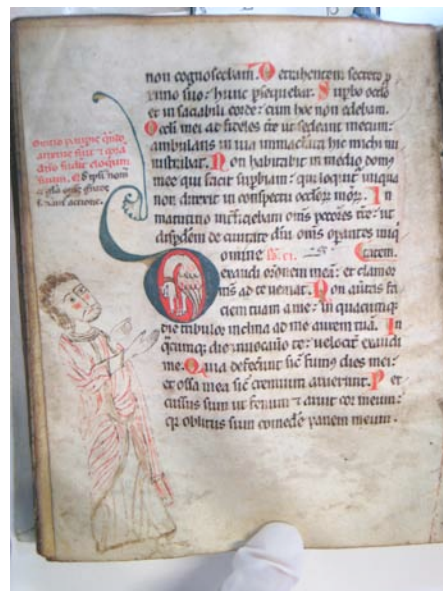 non cognoscebam. Detrahentem secreto p
ximo suo: hunc psequebar. Supbo oclo
et in saciabili corde: cum hoc non edebam.
Ocli mei ad fideles tre ut sedeant mecum:
ambulans in uia immaculata hic michi mi
nistrabat. Non habitabit in medio dom
mee qui facit supbiam: qui loquit iniqua
non direxit in conspectu oclor mor. In
matutino intficiebam oms pccores tre: ut
dispdem de ciuitate dni oms opantes iniq
Domine ps. ci. tatem.
exaudi oronem mea: et clamor
ms ad te ueniat. Non autas fa
ciem tuam a me: in quacumq
die tribulor inclina ad me aurem tua. In
qcumq die inuocauo te: uelocit exaudi
me. Quia defecerut sic fum dies mei:
et ossa mea sic cremium aruerunt. Per
cussus sum ut fenum 7 aruit cor meum:
qr oblitus sum comede panem meum.
Oratio paupis
anxius fuit
fudit eloquium
suum.